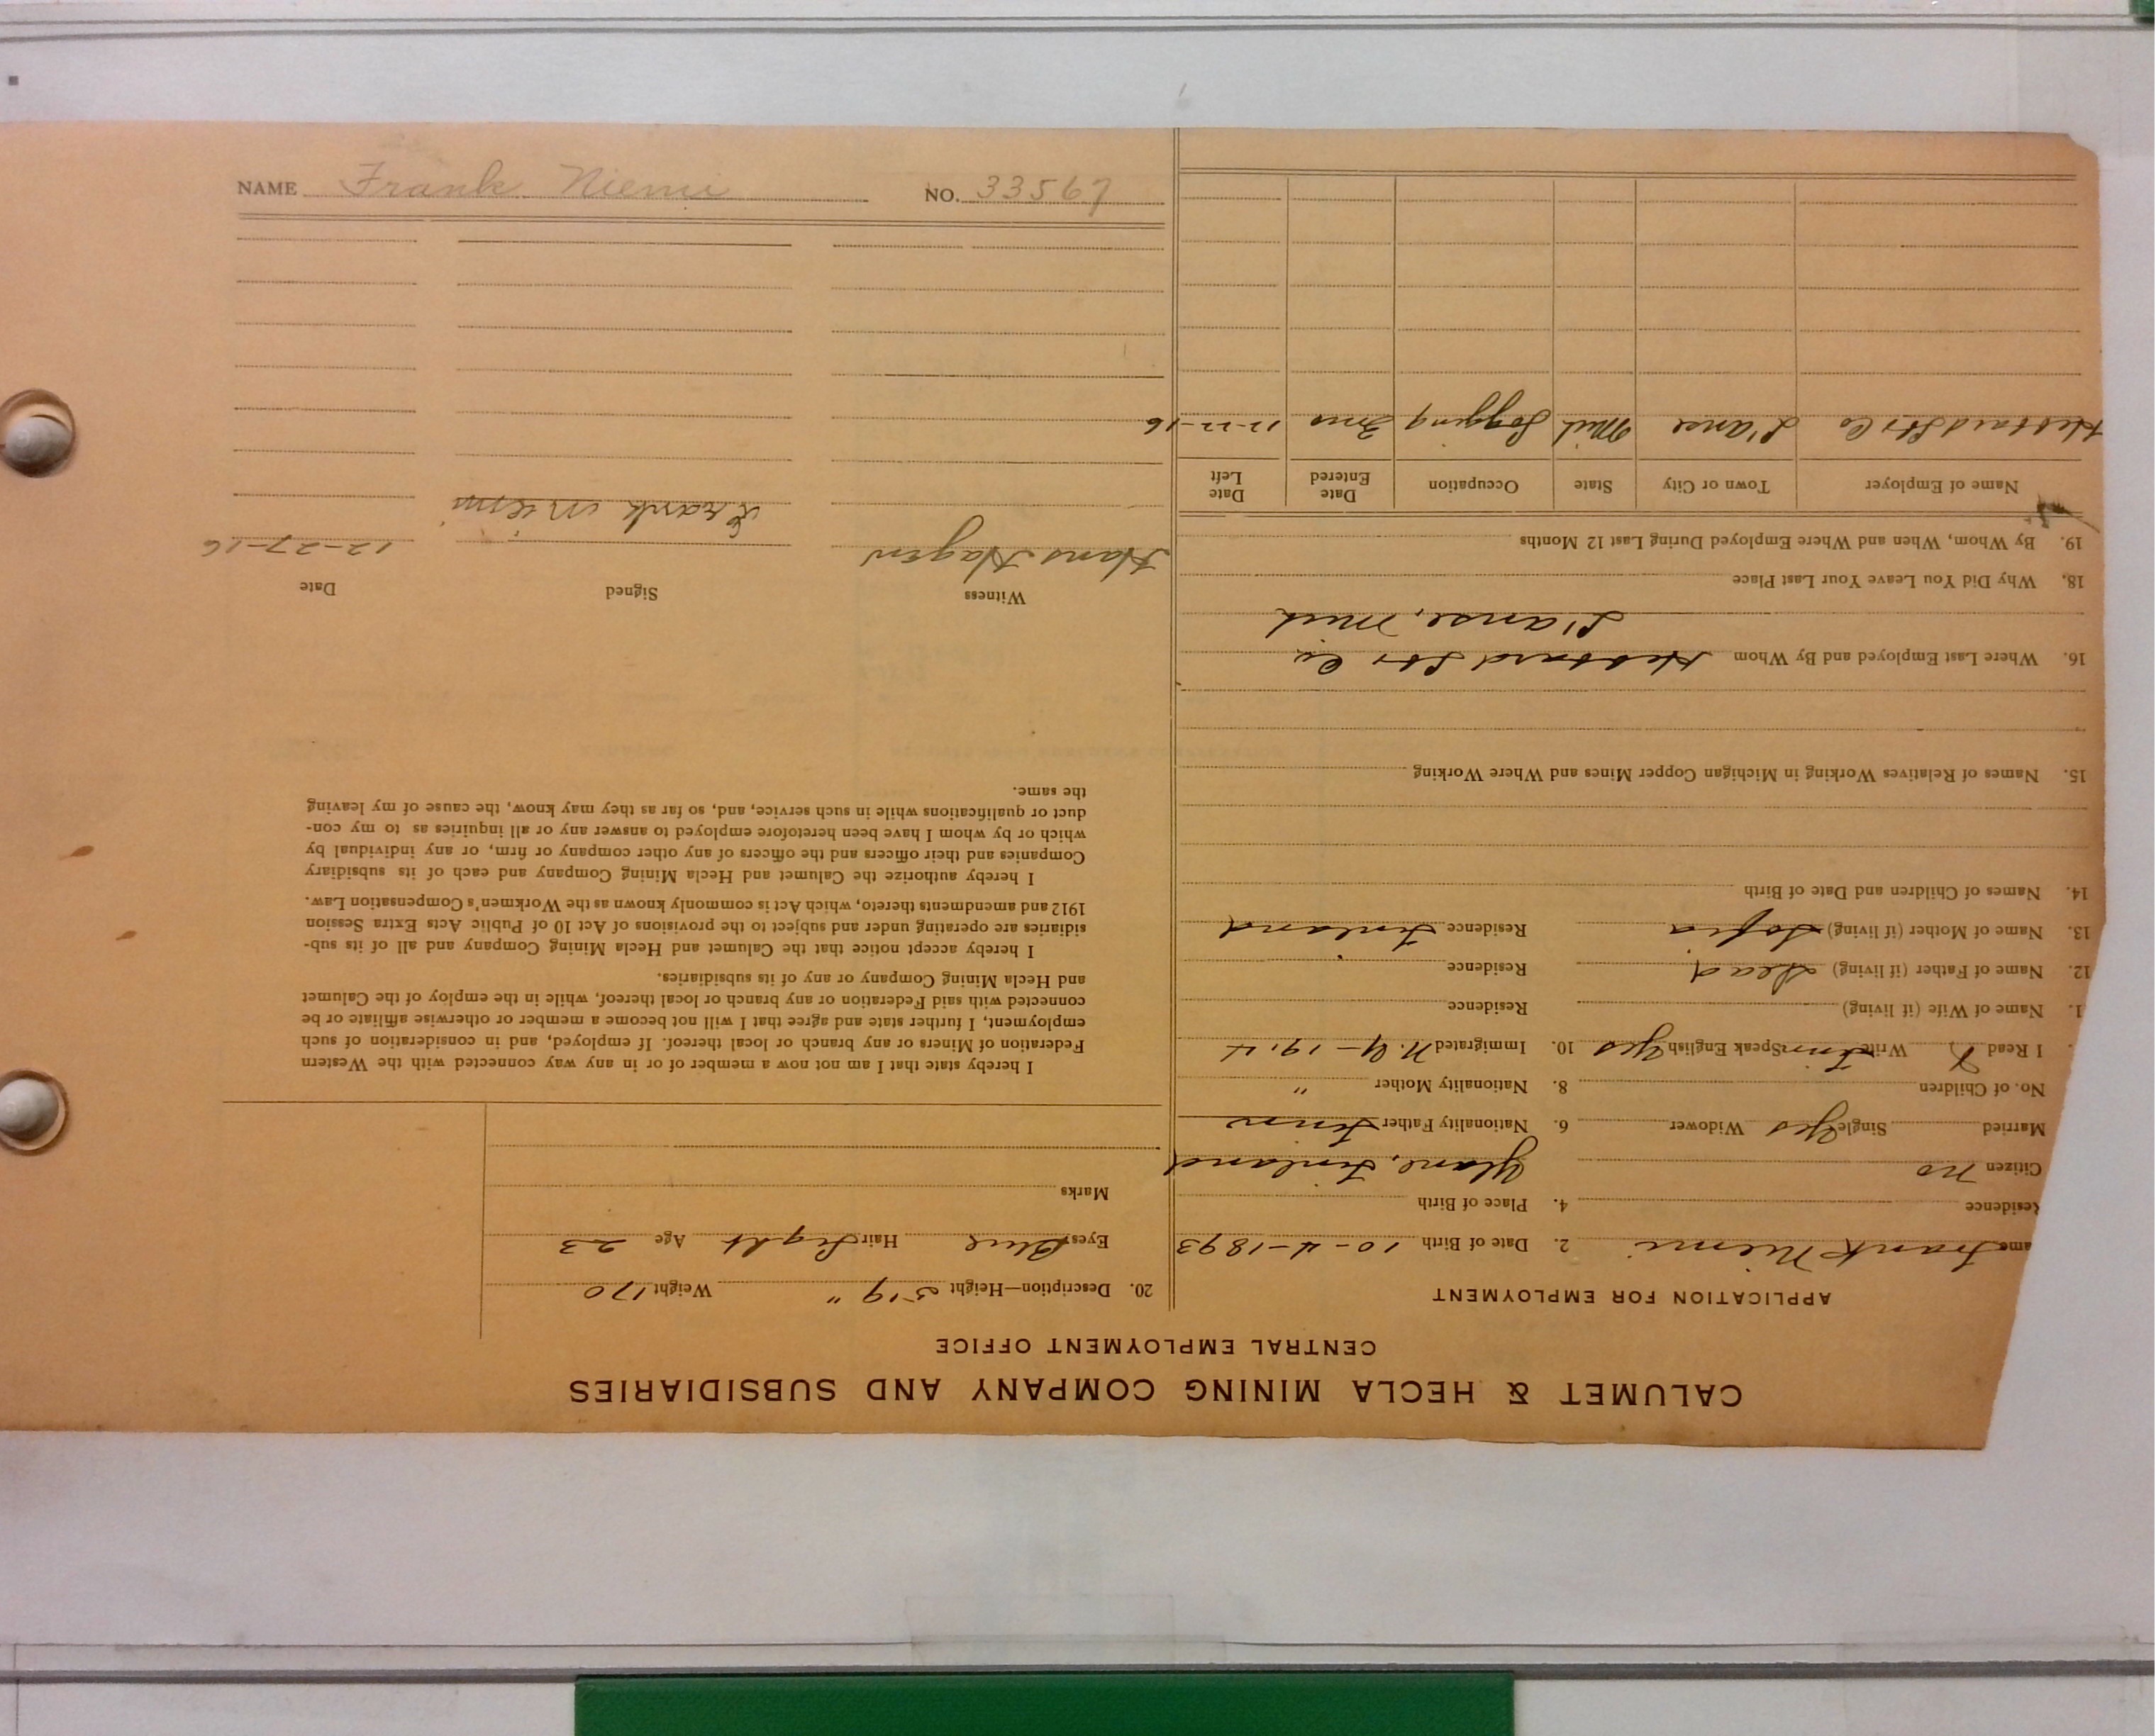 CALUMET & HECLA MINING COMPANY AND SUBSIDIARIES
CENTRAL EMPLOYMENT OFFICE
APPLICATION FOR EMPLOYMENT
ame Frank Niemi 2. Date of Birth 10-4-1893
Residence 4. Place of Birth
Citizen no Finland
Married Single Yes Widower 6. Nationality Father Finn
No. of Children 8. Nationality Mother "
I Read Write Finn Speak English Yes 10. Immigrated N.Y-
1. Name of Wife (if living) Residence
12. Name of Father (if living) Dead Residence
13. Name of Mother (if living) Sofia Residence Finland
14. Names of Children and Date of Birth
15. Names of Relatives Working in Michigan Copper Mines and Where Working
16. Where Last Employed and By Whom
L'anse, Mich
18. Why Did You Leave Your Last Place
19. By Whom, When and Where Employed During Last 12 Months
Name of Employer Town or City State Occupation Date Entered Date Left
L'anse Mich Logging
20. Description—Height 5'9" Weight 170
Eyes Blue Hair Light Age 23
Marks
I hereby state that I am not now a member of or in any way connected with the Western
Federation of Miners or any branch or local thereof. If employed, and in consideration of such
employment, I further state and agree that I will not become a member or otherwise affiliate or be
connected with said Federation or any branch or local thereof, while in the employ of the Calumet
and Hecla Mining Company or any of its subsidiaries.
I hereby accept notice that the Calumet and Hecla Mining Company and all of its sub-
sidiaries are operating under and subject to the provisions of Act 10 of Public Acts Extra Session
1912 and amendments thereto, which Act is commonly known as the Workmen's Compensation Law.
I hereby authorize the Calumet and Hecla Mining Company and each of its subsidiary
Companies and their officers and the officers of any other company or firm, or any individual by
which or by whom I have been heretofore employed to answer any or all inquiries as to my con-
duct or qualifications while in such service, and, so far as they may know, the cause of my leaving
the same.
Witness Signed Date
Hans Hagen Frank Niemi 12-27-16
NAME Frank Niemi NO. 33567